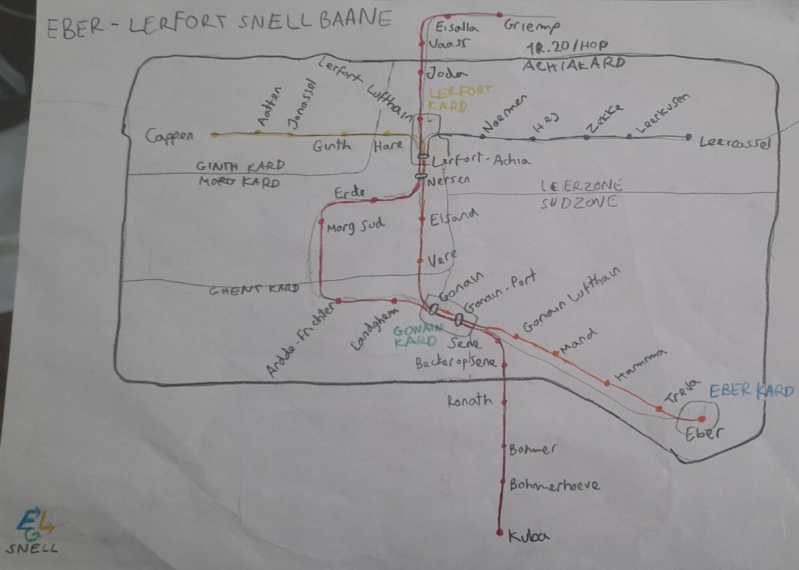 EBER - LERFORT SNELLBAANE
Griemp
Eisalla
Vaass
1R.20/HOP
ACHIAKARD
Joda
Lerfort Lufthain
LERFORT
KARD
Aalten
Janassel
Cappen
Ginth
Hare
Noermen
Hej
Zokke
Leerkusen
Leercassel
Lerfort-Achia
GINTH KARD
MORG KARD
Nersen
LEERZONE
SUDZONE
Erde
Morg Sud
Elsand
Vere
GHENT KARD
Gonain
Gonain-Port
Gonain Lufthain
Ardde-Frichter
Landghem
GONAIN
KARD
Sene
Mand
Beckeropsene
Hamma
Treva
EBER KARD
Eber
Ronath
Bohmer
Bohmerhoeve
Kuba
ELG
SNELL